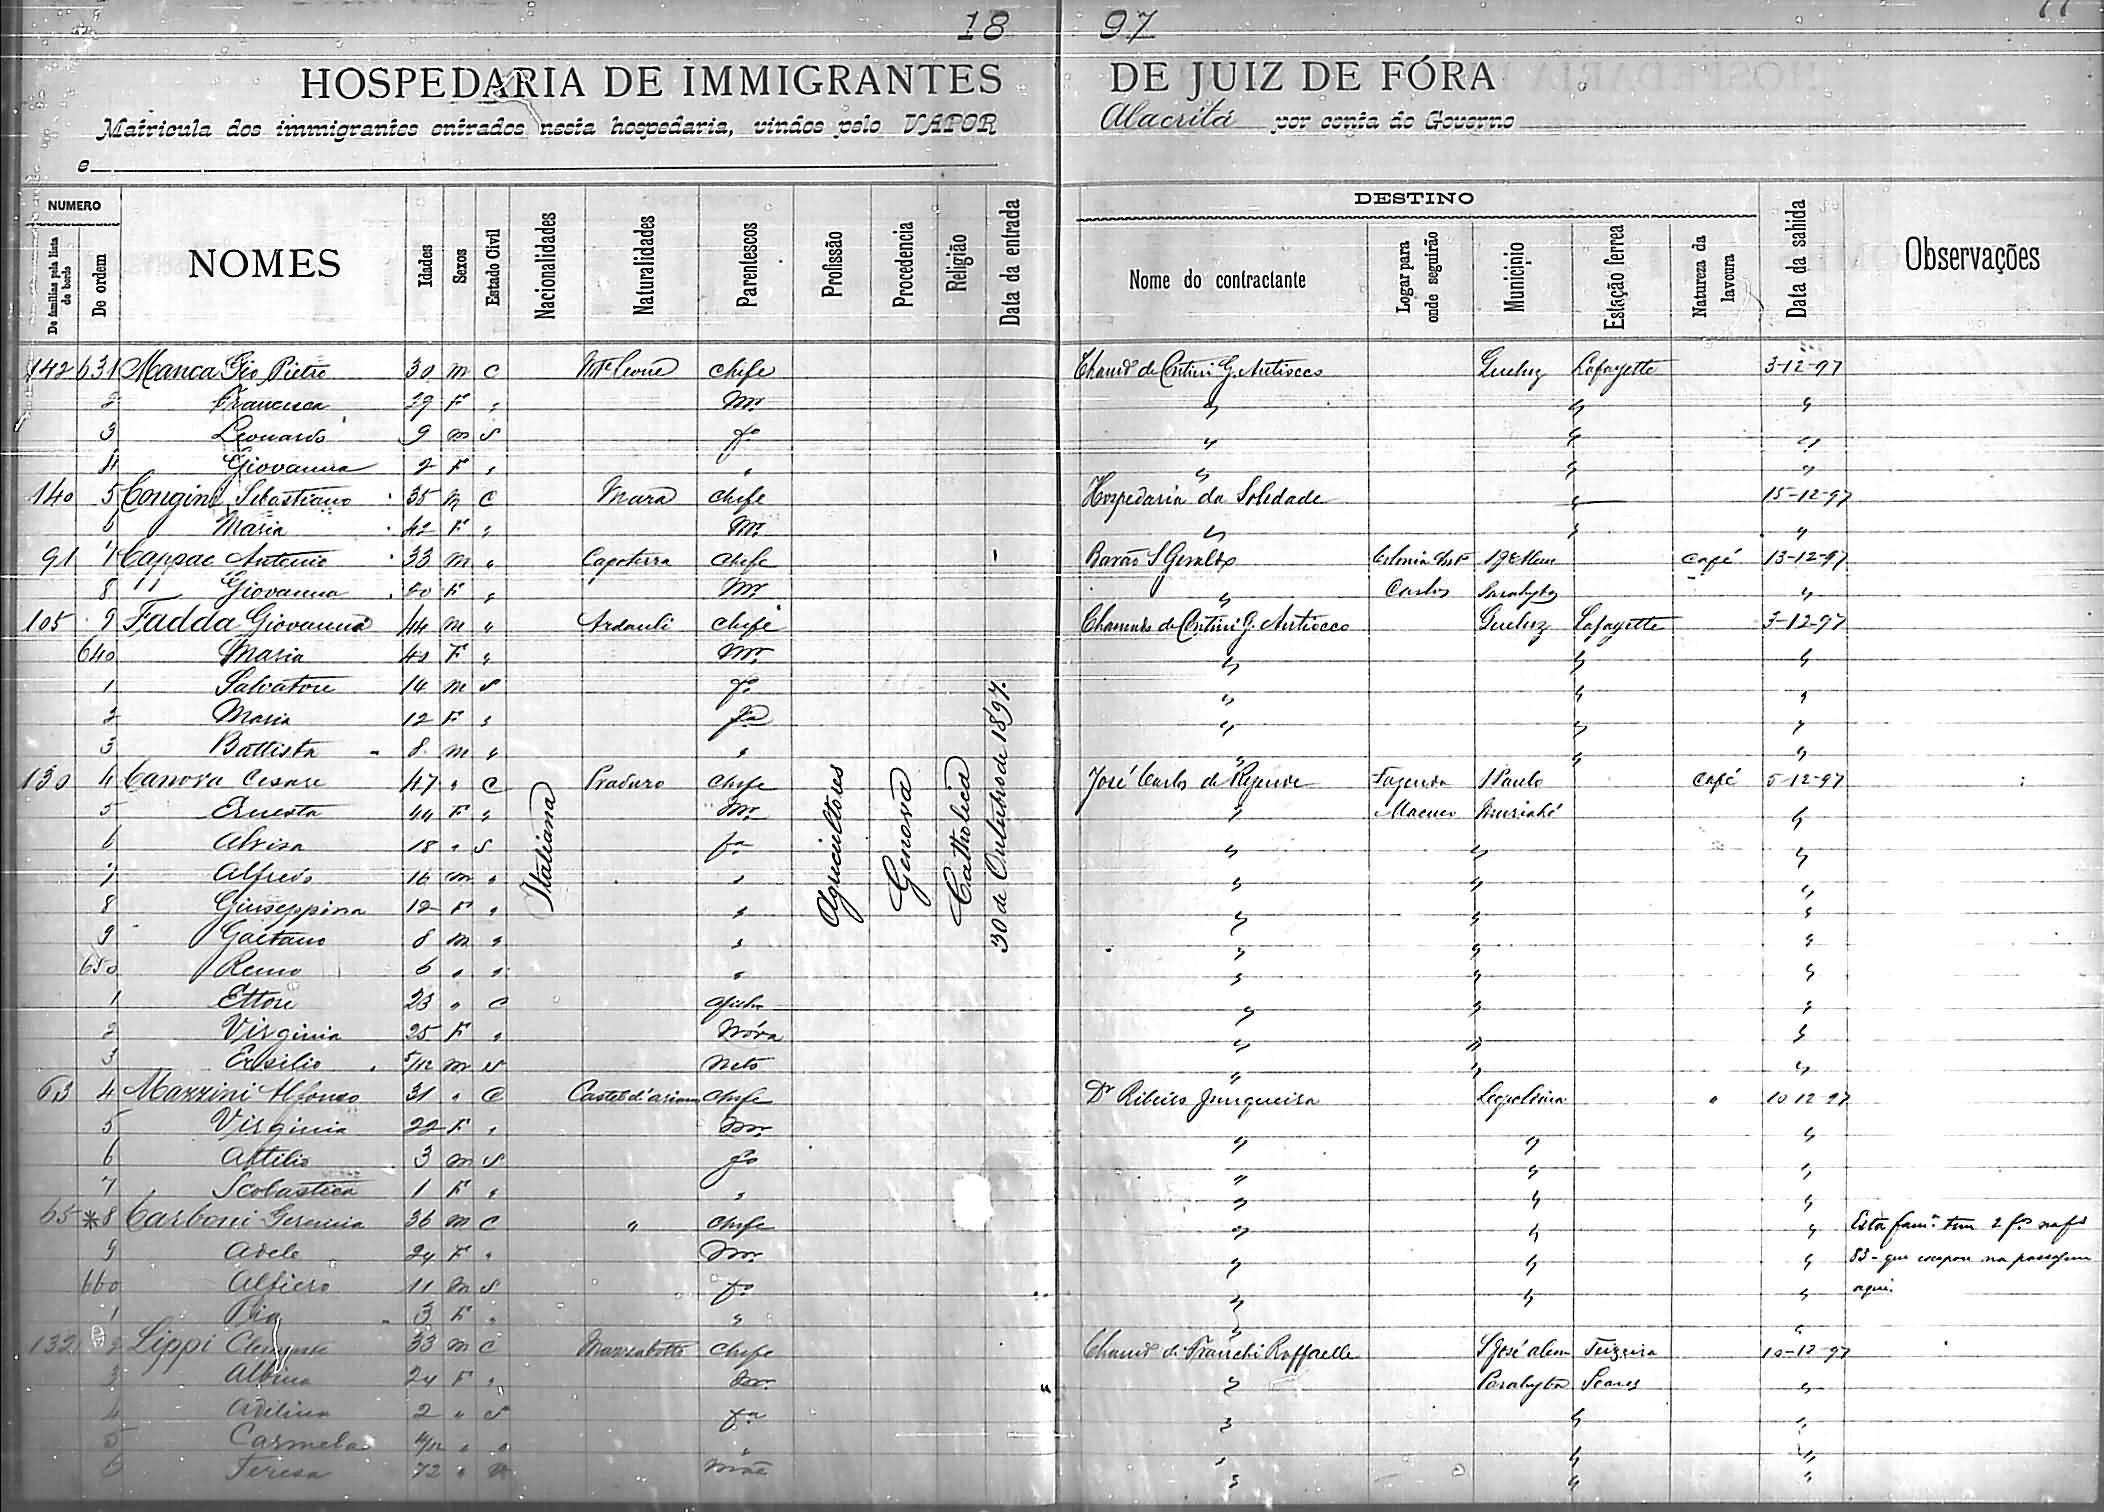 18 97
HOSPEDARIA DE IMMIGRANTES DE JUIZ DE FÓRA
Matricula dos immigrantes entrados nesta hospedaria, vindos pelo VAPOR Alacritá por conta do Governo
e
NUMERO DESTINO
De familias pela lista de bordo De ordem NOMES Idades Sexos Estado Civil Nacionalidades Naturalidades Parentescos Profissão Procedencia Religião Data da entrada Nome do contractante Logar para onde seguirão Municipio Estação ferrea Natureza da lavoura Data da sahida Observações
142 631 Manca Gio Pietro 30 m C Mte Leone Chefe Chamdo de Contini G. Antiocco Queluz Lafayette 3-12-97
2 Francisca 29 F " Mr. " " "
3 Leonardo 9 m S fo " " "
4 Giovanna 2 F " " " " "
140 5 Congini Sebastiano 35 m C Mara Chefe Hospedaria da Soledade 15-12-97
6 Maria 42 F " Mr. " " "
91 7 Cappae Antonio 33 m " Capoterra Chefe Barão S Geraldo Colonia Café 13-12-97
8 Giovanna F " Mr. " Carlos Parahyba "
105 9 Fadda Giovanna 44 m " Ardauli Chefe Chamado de Contini G. Antiocco Queluz Lafayette 3-12-97
640 Maria F " Mr. " " "
1 Salvatore 14 m S fo " " "
2 Maria 12 F " fa " " "
3 Battista 8 m " " " " "
130 4 Canova Cesare 47 " C Praduro Chefe José Carlos de Rezende Fazenda S Paulo Café 5-12-97
5 Ernesta 44 F " Mr. " Macuco Muriahé "
6 18 " S fa " " "
7 Alfredo 16 m " " " " "
8 Giuseppina 12 F " " " " "
9 Gaetano 8 m " " " " "
650 Remo 6 " " " " " "
1 Ettore 23 " C " " "
2 Virginia 25 F " Nóra " " "
3 Ersilio 5/12 m S Neto " " "
63 4 Mazzini Alfonso 31 " C Castel d'ariano Chefe Dr Ribeiro Junqueira Leopoldina " 10-12-97
5 Virginia 22 F " Mr. " " "
6 Attilio 3 m S fo " " "
7 Scolastica 1 F " " " " "
65 *8 Carboni Geremia 36 m C " Chefe " " " Esta fama. tem 2 fos na fs
9 Adele 24 F " Mr. " " " 83 - que na passagem
660 Alfiero 11 m S fo " " " aqui.
1 Pia 3 F " " " "
132 2 Lippi Clemente 33 m C Marzabotto Chefe Chamdo de Franchi Raffaelle S José alem Teixeira 10-12-97
3 Albina 24 F " Mr. " Parahyba Soares "
4 Adelina 2 " S fa " " "
5 Carmela 4/12 " " " " " "
6 Teresa 72 " mãe " " "
Italiana
Agricultores
Genova
Catholica
30 de Outubro de 1897.